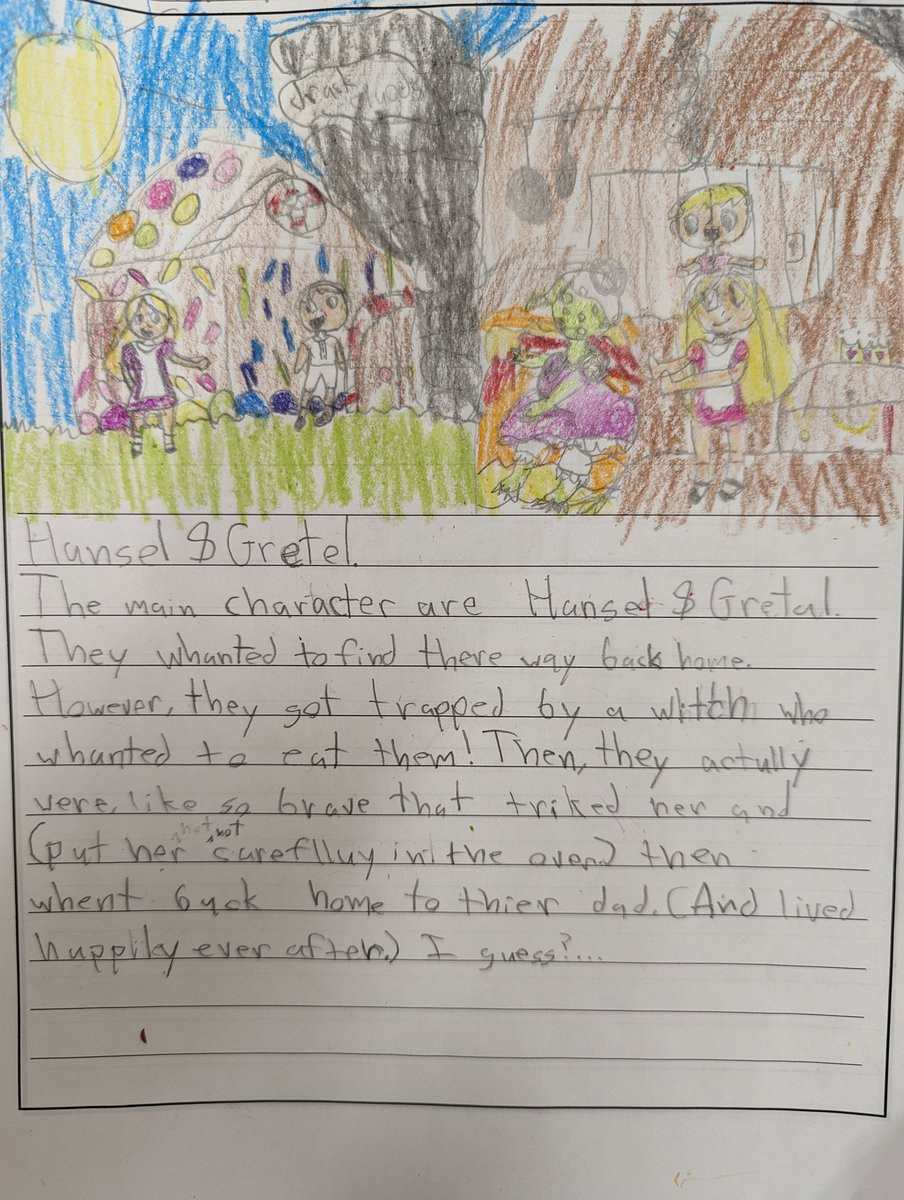 Hansel & Gretel.
The main character are Hansel & Gretal.
They whanted to find there way back home.
However, they got trapped by a witth who
whanted to eat them! Then, they actully
vere, like so brave that triked her and
not not
(put her ^ careflluy in the oven) then
whent back home to thier dad. (And lived
happily ever after.) I guess?...